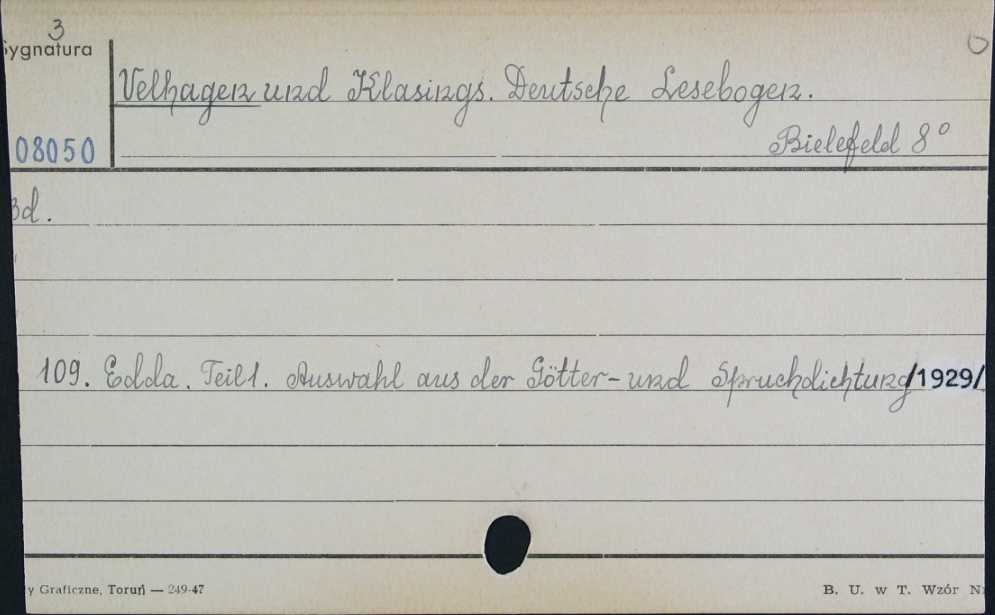 3
Sygnatura
Velhagen und Klasings. Deutsche Lesebogen.
08050
Bielefeld 8°
Bd.
109. Edda. Teil 1. Auswahl aus der Götter- und Spruchdichtung /1929/
y Graficzne, Toruń — 249-47
B. U. w T. Wzór Nr